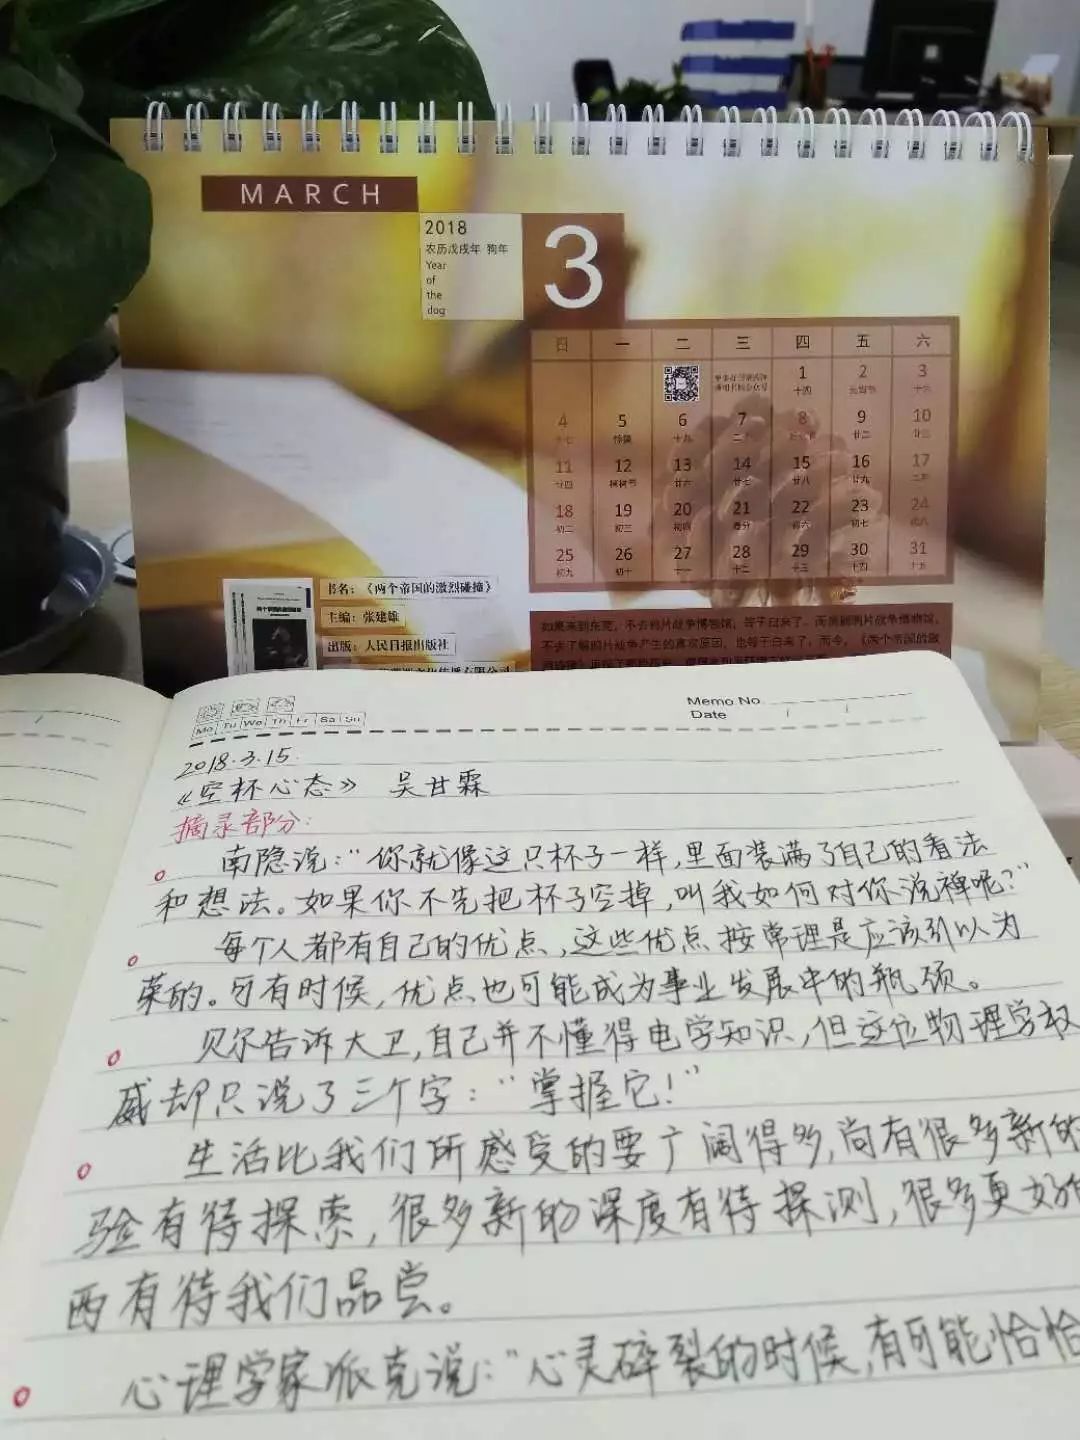 MARCH
2018
农历戊戌年 狗年
Year
of
the
dog
3
日 一 二 三 四 五 六
1 2 3
十四 元宵节 十六
4 5 6 7 8 9 10
十七 惊蛰 十九 二十 廿二 廿三
11 12 13 14 15 16 17
廿四 植树节 廿六 廿七 廿八 廿九 二月
18 19 20 21 22 23 24
初二 初三 初四 春分 初六 初七 初八
25 26 27 28 29 30 31
初九 初十 十一 十二 十三 十四 十五
书名：《两个帝国的激烈碰撞》
主编：张建雄
出版：人民日报出版社
如果来到东莞，不去鸦片战争博物馆，等于白来了。而来到鸦片战争博物馆，
不去了解鸦片战争产生的真实原因，也等于白来了。而今，《两个帝国的激
Memo No.
Date / /
Mo Tu We Th Fr Sa Su
2018.3.15.
《空杯心态》 吴甘霖
摘录部分：
南隐说：“你就像这只杯子一样，里面装满了自己的看法
和想法。如果你不先把杯子空掉，叫我如何对你说禅呢？”
每个人都有自己的优点，这些优点按常理是应该引以为
荣的。可有时候，优点也可能成为事业发展中的瓶颈。
贝尔告诉大卫，自己并不懂得电学知识，但这位物理学权
威却只说了三个字：“掌握它！”
生活比我们所感受的要广阔得多，尚有很多新的
验有待探索，很多新的深度有待探测，很多更好的
西有待我们品尝。
心理学家派克说：“心灵碎裂的时候，有可能恰恰